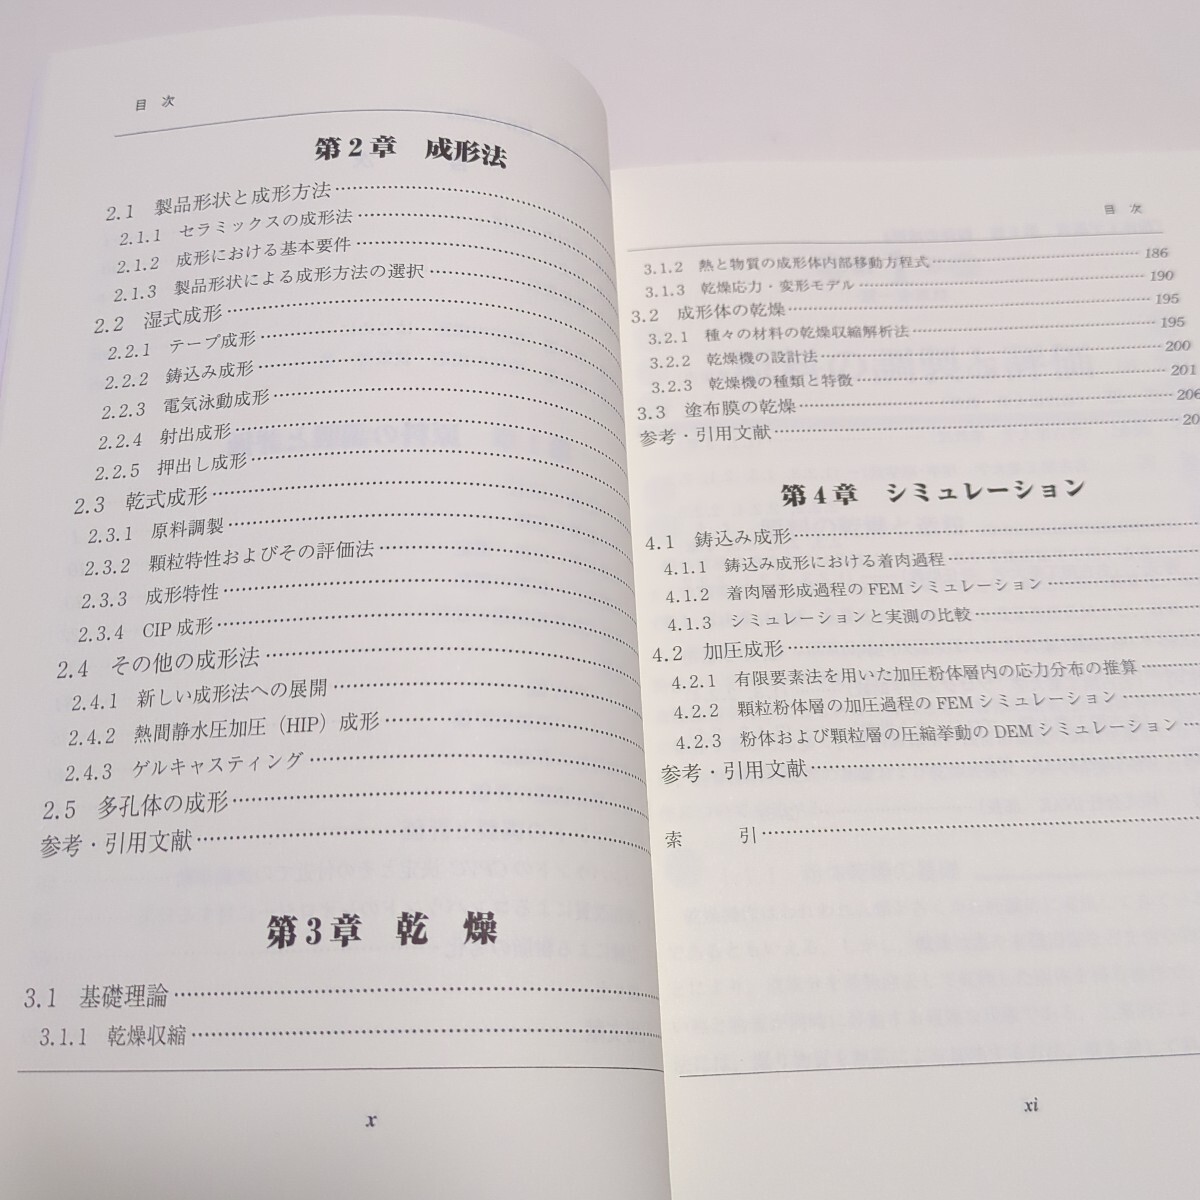 目 次
第2章 成形法
2.1 製品形状と成形方法
2.1.1 セラミックスの成形法
2.1.2 成形における基本要件
2.1.3 製品形状による成形方法の選択
2.2 湿式成形
2.2.1 テープ成形
2.2.2 鋳込み成形
2.2.3 電気泳動成形
2.2.4 射出成形
2.2.5 押出し成形
2.3 乾式成形
2.3.1 原料調製
2.3.2 顆粒特性およびその評価法
2.3.3 成形特性
2.3.4 CIP 成形
2.4 その他の成形法
2.4.1 新しい成形法への展開
2.4.2 熱間静水圧加圧（HIP）成形
2.4.3 ゲルキャスティング
2.5 多孔体の成形
参考・引用文献
第3章 乾 燥
3.1 基礎理論
3.1.1 乾燥収縮
x
目 次
3.1.2 熱と物質の成形体内部移動方程式 186
3.1.3 乾燥応力・変形モデル 190
3.2 成形体の乾燥 195
3.2.1 種々の材料の乾燥収縮解析法 195
3.2.2 乾燥機の設計法 200
3.2.3 乾燥機の種類と特徴 201
3.3 塗布膜の乾燥 206
参考・引用文献
第4章 シミュレーション
4.1 鋳込み成形
4.1.1 鋳込み成形における着肉過程
4.1.2 着肉層形成過程の FEM シミュレーション
4.1.3 シミュレーションと実測の比較
4.2 加圧成形
4.2.1 有限要素法を用いた加圧粉体層内の応力分布の推算
4.2.2 顆粒粉体層の加圧過程の FEM シミュレーション
4.2.3 粉体および顆粒層の圧縮挙動の DEM シミュレーション
参考・引用文献
索 引
xi